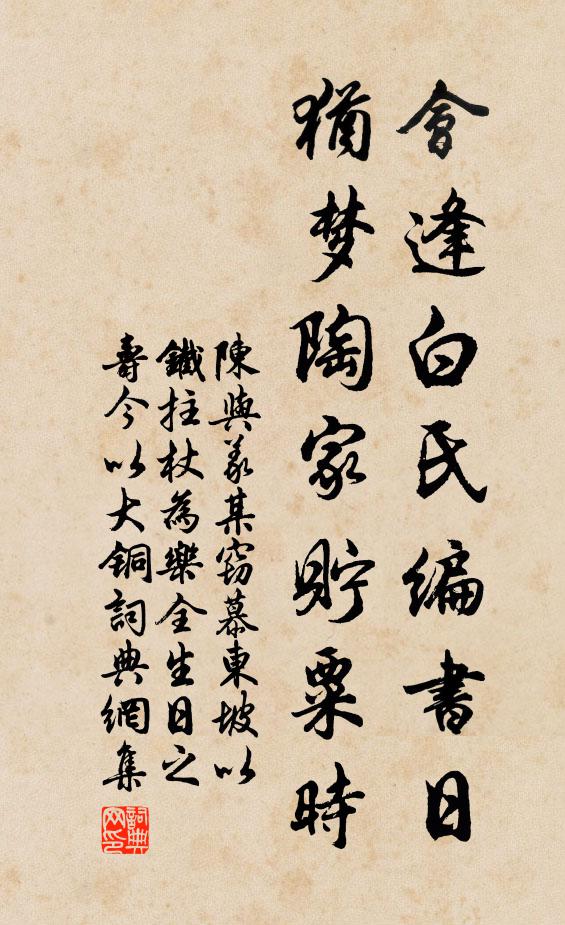 會逢白氏編書日
猶梦陶家貯粟時
陳與義某窃慕東坡以
鐵拄杖為樂全生日之
壽今以大銅詞典網集
詞典
网印